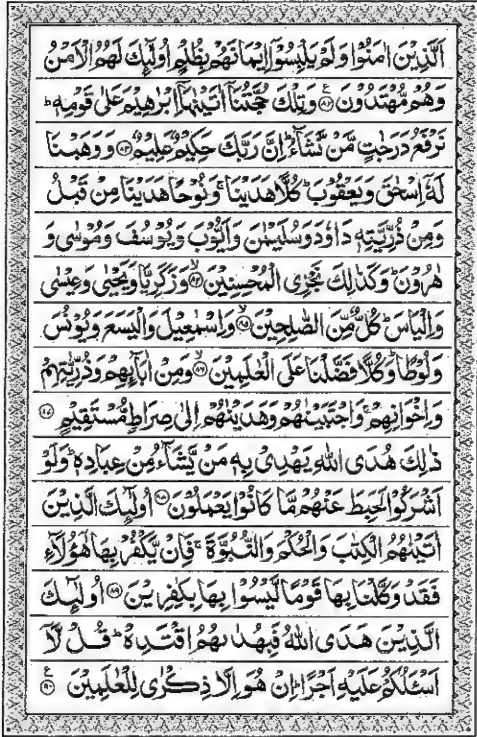 اَلَّذِیْنَ اٰمَنُوْا وَلَمْ یَلْبِسُوْۤا اِیْمَانَهُمْ بِظُلْمٍ اُولٰٓئِكَ لَهُمُ الْاَمْنُ
وَهُمْ مُّهْتَدُوْنَ ۝۸۲ وَتِلْكَ حُجَّتُنَاۤ اٰتَیْنٰهَاۤ اِبْرٰهِیْمَ عَلٰی قَوْمِهٖ ؕ
نَرْفَعُ دَرَجٰتٍ مَّنْ نَّشَآءُ ؕ اِنَّ رَبَّكَ حَكِیْمٌ عَلِیْمٌ ۝۸۳ وَوَهَبْنَا
لَهٗۤ اِسْحٰقَ وَیَعْقُوْبَ ؕ كُلًّا هَدَیْنَا ۚ وَنُوْحًا هَدَیْنَا مِنْ قَبْلُ
وَمِنْ ذُرِّیَّتِهٖ دَاوٗدَ وَسُلَیْمٰنَ وَاَیُّوْبَ وَیُوْسُفَ وَمُوْسٰی وَ
هٰرُوْنَ ؕ وَكَذٰلِكَ نَجْزِی الْمُحْسِنِیْنَ ۝۸۴ وَزَكَرِیَّا وَیَحْیٰی وَعِیْسٰی
وَاِلْیَاسَ ؕ كُلٌّ مِّنَ الصّٰلِحِیْنَ ۝۸۵ وَاِسْمٰعِیْلَ وَالْیَسَعَ وَیُوْنُسَ
وَلُوْطًا ؕ وَكُلًّا فَضَّلْنَا عَلَی الْعٰلَمِیْنَ ۝۸۶ وَمِنْ اٰبَآئِهِمْ وَذُرِّیّٰتِهِمْ
وَاِخْوَانِهِمْ ۚ وَاجْتَبَیْنٰهُمْ وَهَدَیْنٰهُمْ اِلٰی صِرَاطٍ مُّسْتَقِیْمٍ ۝۸۷
ذٰلِكَ هُدَی اللّٰهِ یَهْدِیْ بِهٖ مَنْ یَّشَآءُ مِنْ عِبَادِهٖ ؕ وَلَوْ
اَشْرَكُوْا لَحَبِطَ عَنْهُمْ مَّا كَانُوْا یَعْمَلُوْنَ ۝۸۸ اُولٰٓئِكَ الَّذِیْنَ
اٰتَیْنٰهُمُ الْكِتٰبَ وَالْحُكْمَ وَالنُّبُوَّةَ ۚ فَاِنْ یَّكْفُرْ بِهَا هٰۤؤُلَآءِ
فَقَدْ وَكَّلْنَا بِهَا قَوْمًا لَّیْسُوْا بِهَا بِكٰفِرِیْنَ ۝۸۹ اُولٰٓئِكَ
الَّذِیْنَ هَدَی اللّٰهُ فَبِهُدٰىهُمُ اقْتَدِهْ ؕ قُلْ لَّاۤ
اَسْـَٔلُكُمْ عَلَیْهِ اَجْرًا ؕ اِنْ هُوَ اِلَّا ذِكْرٰی لِلْعٰلَمِیْنَ ۝۹۰